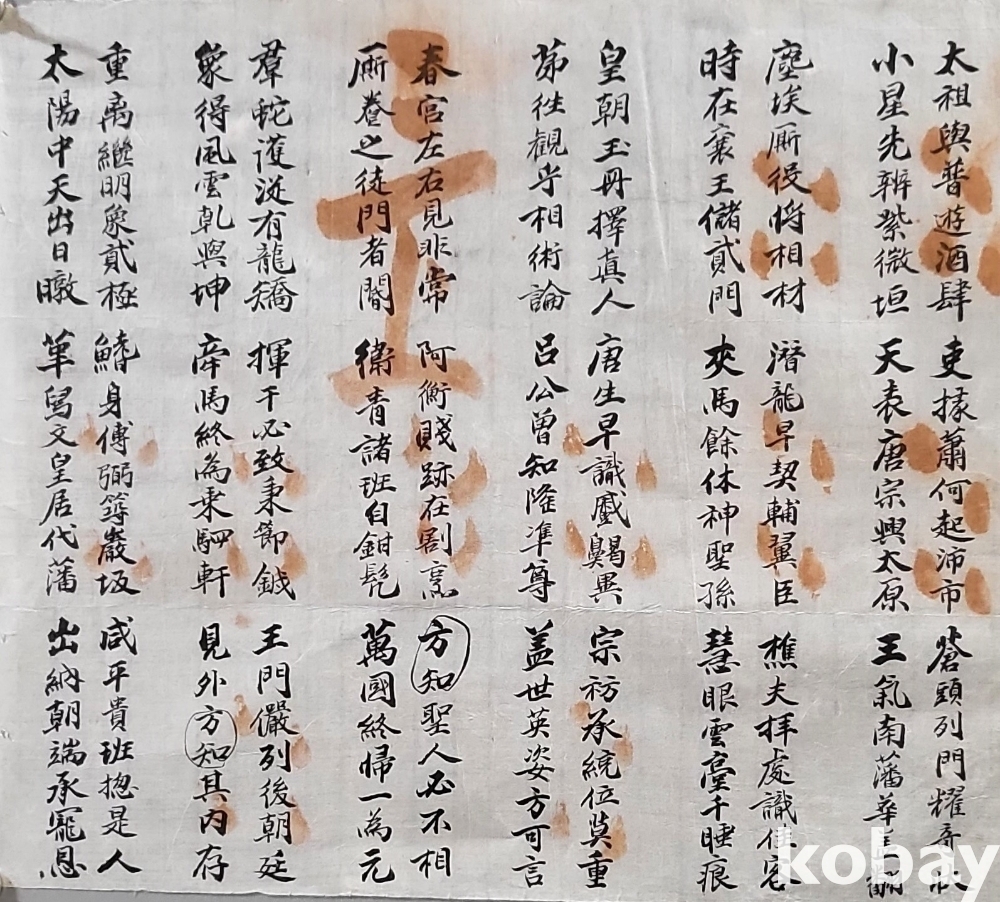 太祖與普遊酒肆 吏掾蕭何起沛市 蒼頭列門耀奇狀
小星先辨紫微垣 天表唐宗興太原 王氣南藩華
塵埃厮役將相材 潛龍早契輔翼臣 樵夫拜處識佳客
時在襄王儲貳門 夾馬餘休神聖孫 慧眼雲臺千睡痕
皇朝玉冊擇真人 唐生早識蹙齃異 宗祊承統位莫重
苐往観乎相術論 呂公曾知隆準尊 盖世英姿方可言
春宮左右見非常 阿衡賤跡在割烹 方知聖人必不相
厮養之徒門者閽 衛青諸班自鉗髡 萬國終歸一為元
羣蛇護從有龍矯 揮干必致秉節鉞 王門儼列後朝廷
象得風雲乾與坤 牽馬終為乘駟軒 見外方知其內存
重離繼明象貳極 鰭身傅弼築巖坂 咸平貴班揔是人
太陽中天出日暾 文皇居代藩 出納朝端承寵恩
kobay